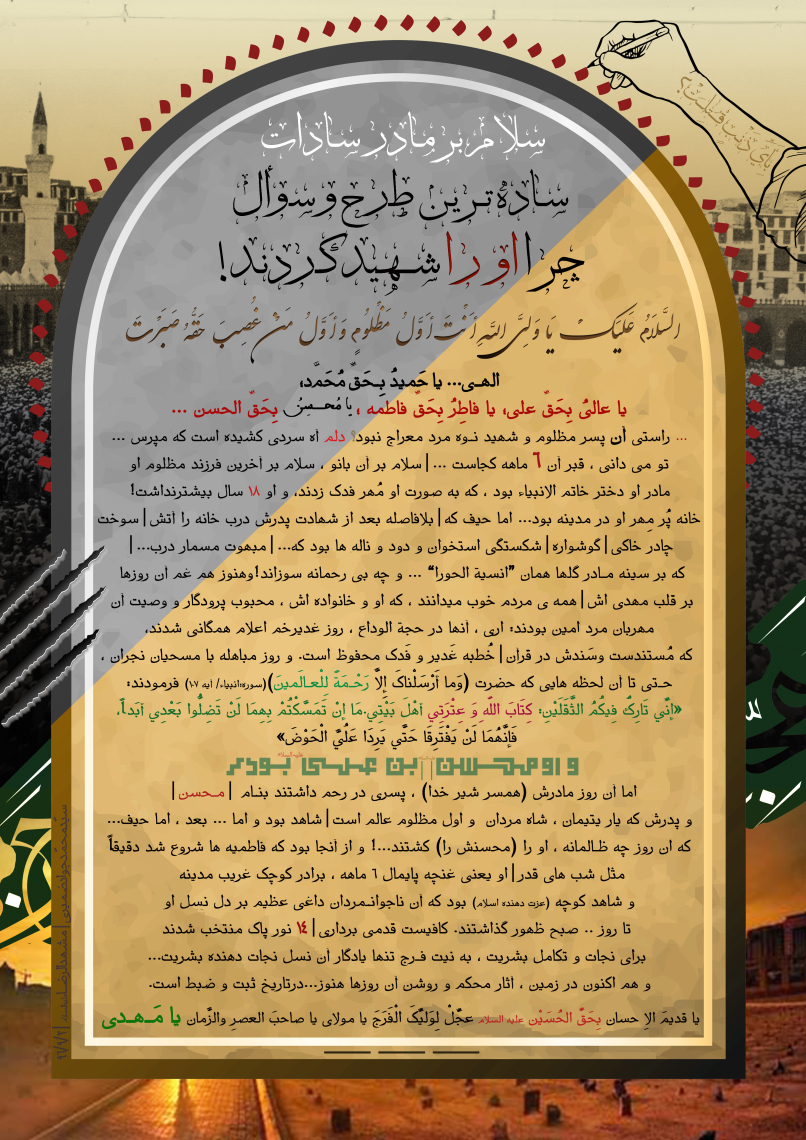 سلام بر مادر سادات
ساده‌ترین طرح و سوأل
چرا او را شهید کردند!
السَّلَامُ عَلَیْکَ یَا وَلِیَّ اللَّهِ أَنْتَ أَوَّلُ مَظْلُومٍ وَ أَوَّلُ مَنْ غُصِبَ حَقُّهُ صَبَرْتَ
الهـی... یا حَمیدُ بِـحَقِّ مُحَمَّد،
یا عالیُ بِحَقِّ علی، یا فاطِرُ بِحَقِّ فاطمه ، یا مُحـسِنُ بِحَقِّ الحسن ...
... راستی آن پسر مظلوم و شهید نـوه مرد معراج نبود؟ دلم آه سردی کشیده است که مپرس ...
تو می دانی ، قبر آن ۶ ماهه کجاست ... | سلام بر آن بانو ، سلام بر آخرین فرزند مظلوم او
مادر او دختر خاتم الانبیاء بود ، که به صورت او مُهر فدک زدند، و او ۱۸ سال بیشترنداشت!
خانه پُر مِهر او در مدینه بود... اما حیف که | بلافاصله بعد از شهادت پدرش درب خانه را آتش | سوخت
چادر خاکی | گوشواره | شکستگی استخوان و دود و ناله ها بود که... | مبهوت مسمار درب... |
که بر سینه مـادر گلها همان ”انسیة الحورا“ ... و چه بی رحمانه سوزاند!وهنوز هم غم آن روزها
بر قلب مهدی اش | همه ی مردم خوب میدانند ، که او و خانواده اش ، محبوب پرودگار و وصیت آن
مهربان مرد امین بودند؛ اری ، آنها در حجة الوداع ، روز غدیرخم اعلام همگانی شدند،
که مُستندست وسَندش در قران | خُطبه غَدیر و فَدک محفوظ است. و روز مباهله با مسحیان نجران ،
حـتی تا آن لحظه هایی که حضرت (وَما أَرْسَلْناکَ إِلاَّ رَحْـمَةً لِلْعـالَمـینَ)(سوره‌انبیاء/ آیه ۱۰۷) فرمودند:
«إنّي تَارِكٌ فِيكُمُ الثَّقَلَيْنِ؛ كِتَابَ اللّهِ وَ عِتْرَتِي أَهْلَ بَيْتِي.مَا إنْ تَمَسَّكْتُمْ بِهِمَا لَنْ تَضِلُّوا بَعْدِي أَبَداً،
فَإنَّهُمَا لَنْ يَفْتَرِقَا حَتَّي يَرِدَا عَلَيَّ الْحَوْضَ»
و او محسن ابن علی بود،
علیه السلام
اما آن روز مادرش (همسر شیر خدا) ، پسری در رحم داشتند بنـام | مـحسن |
و پدرش که یار یتیمان ، شاه مردان و اول مظلوم عالم است | شاهد بود و اما ... بعد ، اما حیف...
که ان روز چه ظـالمانه ، او را (محسنش را) کشتند...! و از آنجا بود که فاطمیه ها شروع شد دقیقاً
مثل شب های قدر | او یعنی غنچه پایمال ۶ ماهه ، برادر کوچک غریب مدینه
و شاهد کوچه (عزت دهنده اسلام) بود که آن ناجوانـمردان داغی عظیم بر دل نسل او
تا روز .. صبح ظهور گذاشتند. کافیست قدمی برداری | ۱۴ نور پاک منتخب شدند
برای نجات و تکامل بشریت ، به نیت فـرج تنها یادگار آن نسل نجات دهنده بشریت...
و هم اکنون در زمین ، آثار محکم و روشن آن روزها هنوز...درتاریخ ثبت و ضبط است.
یا قدیمَ الإ حسان بِحَقِّ الحُسَیْن علیه السلام عجِّلْ لِوَلیِّکَ الْفَرَجَ یا مولای یا صاحبَ العصرِ والزَّمان یا مَـهـدی
بِأَيِّ ذَنْبٍ قُتِلَتْ؟